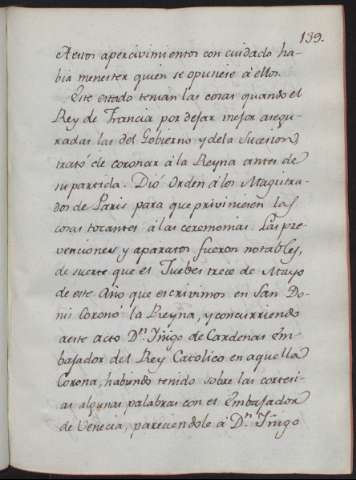 139.
Aestos apercivimientos con cuidado ha-
bia menester quien se opusiese à ellos.
Este estado tenian las cosas quando el
Rey de Francia por dejar mejor asegu-
radas las del Gobierno y dela Sucesion,
trató de coronar à la Reyna antes de
su partida. Dió orden à los Magistra-
dos de Paris para que previniesen las
cosas tocantes à las ceremonias. Las pre-
venciones y aparatos fueron notables,
de suerte que el Jueves trece de Mayo
de este Año que escrivimos en San Do-
nis Coronó la Reyna, y concurriendo
aeste acto D.n Iñigo de Cardenas Em-
bajador del Rey Catolico en aquella
Corona, habiendo tenido sobre las cortesi-
as algunas palabras con el Embajador
de Venecia, pareciendole à D.n Iñigo